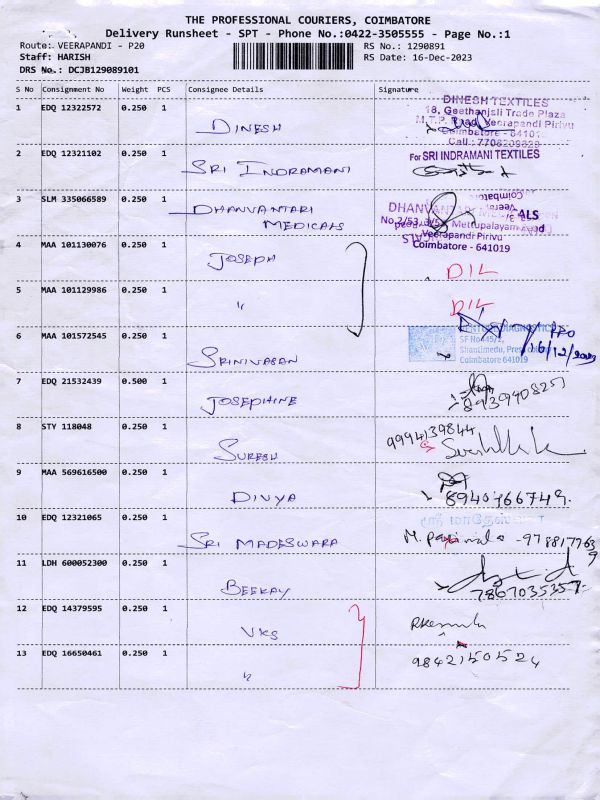 THE PROFESSIONAL COURIERS, COIMBATORE
Delivery Runsheet - SPT - Phone No.:0422-3505555 - Page No.:1
Route: VEERAPANDI - P20
RS No.: 1290891
Staff: HARISH
RS Date: 16-Dec-2023
DRS No.: DCJB129089101
S No Consignment No Weight PCS Consignee Details Signature
1 EDQ 12322572 0.250 1 DINESH
DINESH TEXTILES
18, Geethanjali Trade Plaza
M.T.P. Road, Veerapandi Pirivu
Coimbatore - 64101
Call : 7708209829
2 EDQ 12321102 0.250 1 SRI INDRAMANI
For SRI INDRAMANI TEXTILES
3 SLM 335066589 0.250 1 DHANVANTARI MEDICALS
Veerapandi Pirivu
Coimbatore - 641019
4 MAA 101130076 0.250 1 JOSEPH DIL
5 MAA 101129986 0.250 1 " DIL
6 MAA 101572545 0.250 1 SRINIVASAN
SF No445/1,
Coimbatore 641019
16/12/2023
7 EDQ 21532439 0.500 1 JOSEPHINE
8939408257
8 STY 118048 0.250 1 SURESH
9994139844
9 MAA 569616500 0.250 1 DIVYA
8940766749.
10 EDQ 12321065 0.250 1 SRI MADESWARA
11 LDH 600052300 0.250 1 BEEKAY
7867035357
12 EDQ 14379595 0.250 1 VKS
13 EDQ 16650461 0.250 1 "
9842150524